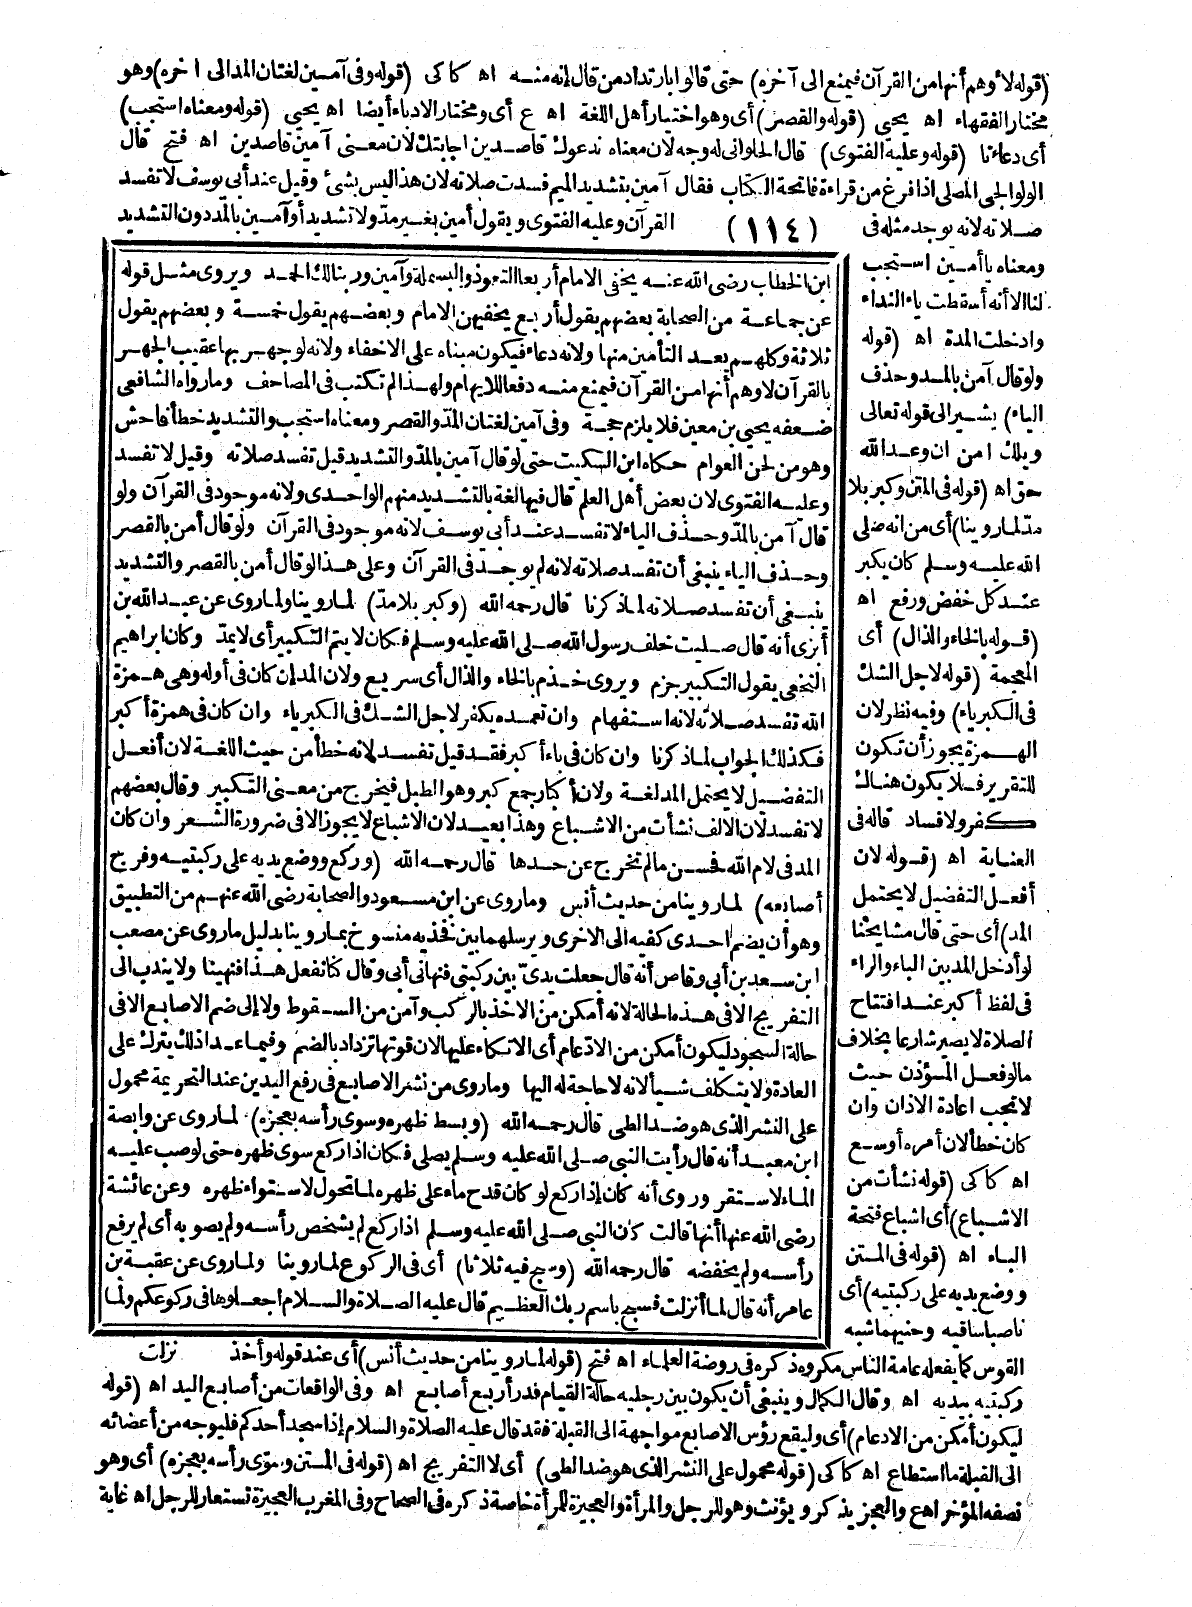 (قوله لأوهم أنها من القرآن فيمنع الى آخره) حتى قالوا بارتداد من قال إنه منه اه كاكى (قوله وفى آمين لغتان المد الى اخره) وهو
مختار الفقهاء اه يحيى (قوله والقصر) أى وهو اختيار أهل اللغة اه ع أى ومختار الادباء أيضا اه يحيى (قوله ومعناه استجب)
أى دعاءنا (قوله وعليه الفتوى) قال الحلوانى له وجه لان معناه ندعوك قاصدين اجابتك لان معنى آمين قاصدين اه فتح قال
الولوالجى المصلى اذا فرغ من قراءة فاتحة الكتاب فقال آمين بتشديد الميم فسدت صلاته لان هذا ليس بشئ وقيل عند أبى يوسف لا تفسد
صلاته لانه يوجد مثله فى (١١٤) القرآن وعليه الفتوى ويقول أمين بغير مد ولا تشديد أو آمين بالمد دون التشديد
ومعناه يا أمين استجب
لنا الا أنه أسقطت ياء النداء
وادخلت المدة اه (قوله
ولو قال آمن بالمد وحذف
الياء) يشير الى قوله تعالى
ويلك امن ان وعد الله
حق اه (قوله فى المتن وكبر بلا
مد لما روينا) أى من انه صلى
الله عليه وسلم كان يكبر
عند كل خفض ورفع اه
(قوله بالخاء والذال) أى
المعجمة (قوله لاجل الشك
فى الكبرياء) وفيه نظر لان
الهمزة يجوز أن تكون
للتقرير فلا يكون هناك
كفر ولا فساد قاله فى
العناية اه (قوله لان
أفعل التفضيل لا يحتمل
المد) أى حتى قال مشايخنا
لو أدخل المد بين الباء والراء
فى لفظ أكبر عند افتتاح
الصلاة لا يصير شارعا بخلاف
مالو فعل المؤذن حيث
لا تجب اعادة الاذان وان
كان خطأ لان أمره أوسع
اه كاكى (قوله نشأت من
الاشباع) أى اشباع فتحة
الباء اه (قوله فى المتن
ووضع يديه على ركبتيه) أى
ناصبا ساقيه وحنيهما شبه
ابن الخطاب رضى الله عنه يخفى الامام أربعا التعوذ والبسملة وآمين وربنا لك الحمد ويروى مثل قوله
عن جماعة من الصحابة بعضهم يقول أربع يخفيهن الامام وبعضهم يقول خمسة وبعضهم يقول
ثلاثة وكلهم يعد التأمين منها ولانه دعاء فيكون مبناه على الاخفاء ولانه لو جهر بها عقيب الجهر
بالقرآن لاوهم أنها من القرآن فيمنع منه دفعا للايهام ولهذا لم تكتب فى المصاحف وما رواه الشافعى
ضعفه يحيى بن معين فلا يلزم حجة وفى آمين لغتان المد والقصر ومعناه استجب والتشديد خطأ فاحش
وهو من لحن العوام حكاه ابن السكيت حتى لو قال آمين بالمد والتشديد قيل تفسد صلاته وقيل لا تفسد
وعليه الفتوى لان بعض أهل العلم قال فيها لغة بالتشديد منهم الواحدى ولانه موجود فى القرآن ولو
قال آمن بالمد وحذف الياء لا تفسد عند أبى يوسف لانه موجود فى القرآن ولو قال أمن بالقصر
وحذف الياء ينبغى أن تفسد صلاته لانه لم يوجد فى القرآن وعلى هذا لو قال أمن بالقصر والتشديد
ينبغى أن تفسد صلاته لما ذكرنا قال رحمه الله (وكبر بلا مد) لما روينا ولما روى عن عبد الله بن
أبزى أنه قال صليت خلف رسول الله صلى الله عليه وسلم فكان لا يتم التكبير أى لا يمد وكان ابراهيم
النخعى يقول التكبير جزم ويروى خذم بالخاء والذال أى سريع ولان المد ان كان فى أوله وهى همزة
الله تفسد صلاته لانه استفهام وان تعمده يكفر لاجل الشك فى الكبرياء وان كان فى همزة أكبر
فكذلك الجواب لما ذكرنا وان كان فى باء أكبر فقد قيل تفسد لانه خطأ من حيث اللغة لان أفعل
التفضيل لا يحتمل المد لغة ولان أكبار جمع كبر وهو الطبل فيخرج من معنى التكبير وقال بعضهم
لا تفسد لان الالف نشأت من الاشباع وهذا بعيد لان الاشباع لا يجوز الا فى ضرورة الشعر وان كان
المد فى لام الله فحسن مالم تخرج عن حدها قال رحمه الله (وركع ووضع يديه على ركبتيه وفرج
أصابعه) لما روينا من حديث أنس وما روى عن ابن مسعود والصحابة رضى الله عنهم من التطبيق
وهو أن يضم احدى كفيه الى الاخرى ويرسلهما بين فخذيه منسوخ بما روينا بدليل ما روى عن مصعب
ابن سعد بن أبى وقاص أنه قال جعلت يدىّ بين ركبتى فنهانى أبى وقال كنا نفعل هذا فنهينا ولا يندب الى
التفريج الا فى هذه الحالة لانه أمكن من الاخذ بالركب وآمن من السقوط ولا إلى ضم الاصابع الا فى
حالة السجود ليكون أمكن من الادعام أى الاتكاء عليها لان قوتها تزداد بالضم وفيما عدا ذلك يترك على
العادة ولا يتكلف شيأ لانه لا حاجة له اليها وما روى من نشر الاصابع فى رفع اليدين عند التحريمة محمول
على النشر الذى هو ضد الطى قال رحمه الله (وبسط ظهره وسوى رأسه بعجزه) لما روى عن وابصة
ابن معبد أنه قال رأيت النبى صلى الله عليه وسلم يصلى فكان اذا ركع سوى ظهره حتى لو صب عليه
الماء لاستقر وروى أنه كان إذا ركع لو كان قدح ماء على ظهره لما تحول لاستواء ظهره وعن عائشة
رضى الله عنها أنها قالت كان النبى صلى الله عليه وسلم اذا ركع لم يشخص رأسه ولم يصوبه أى لم يرفع
رأسه ولم يخفضه قال رحمه الله (وسبح فيه ثلاثا) أى فى الركوع لما روينا ولما روى عن عقبة بن
عامر أنه قال لما أنزلت فسبح باسم ربك العظيم قال عليه الصلاة والسلام اجعلوها فى ركوعكم ولما
نزلت
القوس كما يفعله عامة الناس مكروه ذكره فى روضة العلماء اه فتح (قوله لما روينا من حديث أنس) أى عند قوله وأخذ
ركبتيه بيديه اه وقال الكمال وينبغى أن يكون بين رجليه حالة القيام قدر أربع أصابع اه وفى الواقعات من أصابع اليد اه (قوله
ليكون أمكن من الادعام) أى وليقع رؤس الاصابع مواجهة الى القبلة فقد قال عليه الصلاة والسلام إذا سجد أحدكم فليوجه من أعضائه
الى القبلة ما استطاع اه كاكى (قوله محمول على النشر الذى هو ضد الطى) أى لا التفريج اه (قوله فى المتن وسوّى رأسه بعجزه) أى وهو
نصفه المؤخر اه ع والعجز يذكر ويؤنث وهو للرجل والمرأة والعجيزة للمرأة خاصة ذكره فى الصحاح وفى المغرب العجيزة تستعار للرجل اه غاية